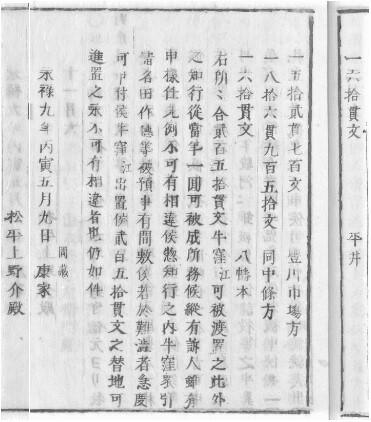 一六拾貫文　平井
一五拾貳貫七百文　豊川市場方
一八拾六貫九百五拾文　同中條方
一六拾貫文　八幡本
右所〻合貳百五拾貫文牛窪江可被渡置之此外
之知行從當年一圓可被成所務候縦有訴人雖有
申樣任先例不可有相違候惣知行之内牛窪衆引
諸名田作德等被預事有間敷候若於難澁者急度
可申付候牛窪江出置候貳百五拾貫文之替地可
進置之永不可有相違者也仍如件
永祿九年丙寅五月九日　岡藏
家康
松平上野介殿